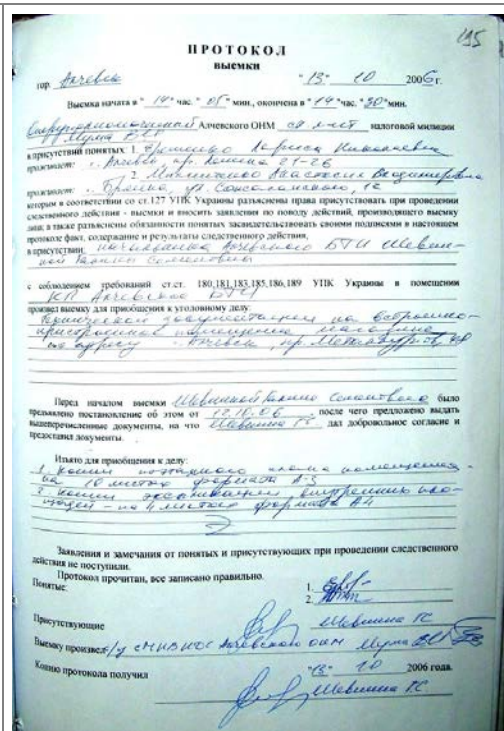 195
ПРОТОКОЛ
выемки
гор. Алчевск "13" 10 2006 г.
Выемка начата в "14" час. "05" мин., окончена в "14" час. "30" мин.
Алчевского ОНМ налоговой милиции
в присутствии понятых: 1. Лариса Николаевна
проживает: г. Алчевск, пр. Ленина 21-26
2. Анастасия Владимировна
проживает: г. Брянка, ул.
которым в соответствии со ст.127 УПК Украины разъяснены права присутствовать при проведении
следственного действия - выемки и вносить заявления по поводу действий, производящего выемку
лица, а также разъяснены обязанности понятых засвидетельствовать своими подписями в настоящем
протоколе факт, содержание и результаты следственного действия,
в присутствии: начальника Алчевского БТИ
Галины
с соблюдением требований ст.ст. 180,181,183,185,186,189 УПК Украины в помещении
КП Алчевского БТИ
произвел выемку для приобщения к уголовному делу:
технической документации на встроенно-
пристроенное помещение магазина
по адресу г. Алчевск, пр. Металлургов
Перед началом выемки было
предъявлено постановление об этом от 12.10.06, после чего предложено выдать
вышеперечисленные документы, на что дал добровольное согласие и
предоставил документы.
Изъято для приобщения к делу:
1. копии поэтажного плана помещения -
на 10 листах формата А-3
2. копии экспликации внутренних пло-
щадей - на 4 листах формата А4
Заявления и замечания от понятых и присутствующих при проведении следственного
действия не поступили.
Протокол прочитан, все записано правильно.
Понятые: 1.
2.
Присутствующие
Выемку произвел: Алчевского ОНМ
Копию протокола получил "13" 10 2006 года.